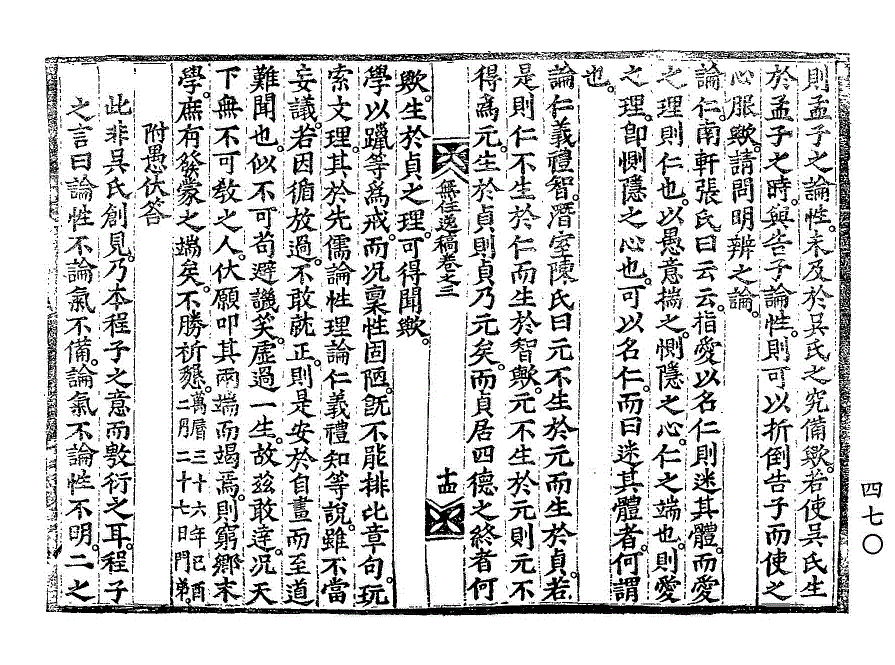 則孟子之論性。未及於吳氏之究備歟。若使吳氏生
於孟子之時。與告子論性。則可以折倒告子而使之
心服歟。請問明辨之論。
論仁。南軒張氏曰云云。指愛以名仁則迷其體。而愛
之理則仁也。以愚意揣之。惻隱之心。仁之端也。則愛
之理。卽惻隱之心也。可以名仁而曰迷其體者。何謂
也。
論仁義禮智。潛室陳氏曰元不生於元而生於貞。若
是則仁不生於仁而生於智歟。元不生於元則元不
得爲元。生於貞則貞乃元矣。而貞居四德之終者何
無住逸稿卷之三
十四
歟。生於貞之理。可得聞歟。
學以躐等爲戒。而况稟性固陋。旣不能排比章句。玩
索文理。其於先儒論性理論仁義禮知等說。雖不當
妄議。若因循放過。不敢就正。則是安於自畫而至道
難聞也。似不可苟避譏笑。虛過一生。故玆敢達。况天
下無不可敎之人。伏願叩其兩端而竭焉。則窮鄕末
學。庶有發蒙之端矣。不勝祈懇。萬曆三十六年己酉二月二十七日。門弟。
附愚伏答
此非吳氏創見。乃本程子之意而敷衍之耳。程子
之言曰論性不論氣不備。論氣不論性不明。二之
四七〇